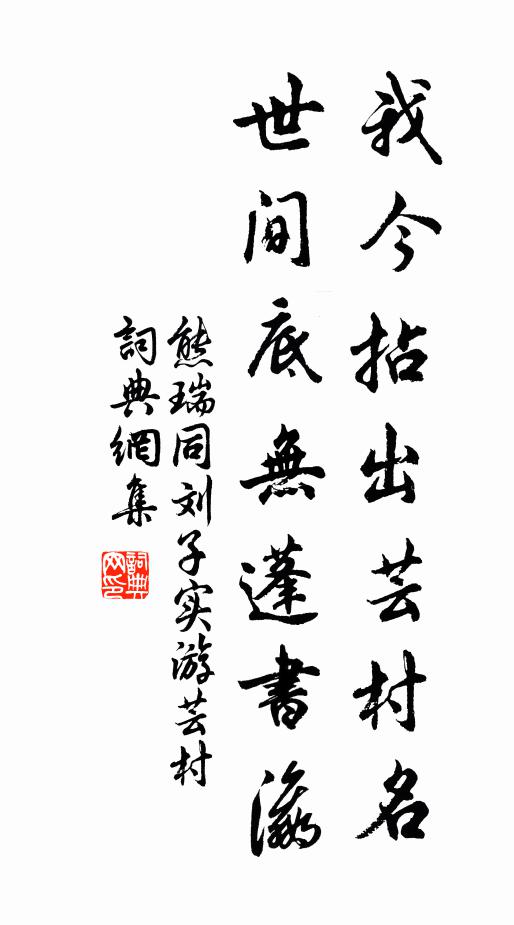 我今拈出芸村名
世间底無蓬書瀛
熊瑞同刘子实游芸村
詞典網集
詞典网印